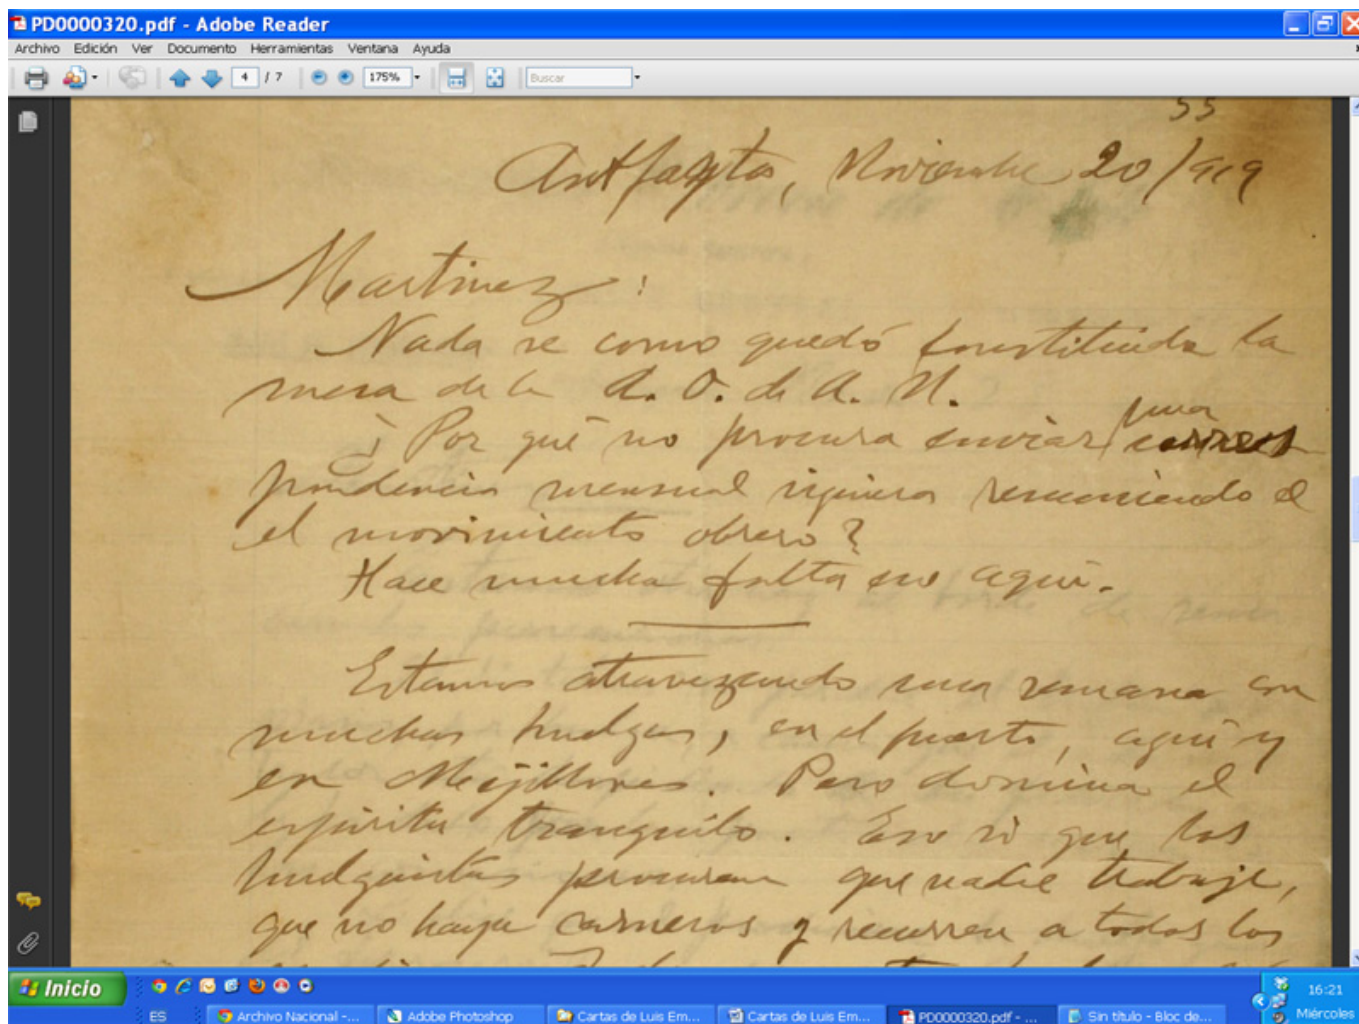 PD0000320.pdf - Adobe Reader
Archivo Edición Ver Documento Herramientas Ventana Ayuda
4 / 7 175% Buscar
55
Antfagta, Noviembre 20/919
Martinez:
Nada se como quedó constituida la
mesa de la A. O. de A. N.
¿Por qué no procura enviar una corres
pondencia mensual siquiera resumiendo el
el movimiento obrero?
Hace mucha falta eso aquí.
Estamos atravezando una semana con
muchas huelgas, en el puerto, aquí y
en Mejillones. Pero domina el
espíritu tranquilo. Eso si que los
huelguistas procuran que nadie trabaje,
que no haya carneros y recurren a todos los
Inicio
16:21
ES Archivo Nacional -... Adobe Photoshop Cartas de Luis Em... Cartas de Luis Em... PD0000320.pdf - ... Sin título - Bloc de... Miércoles